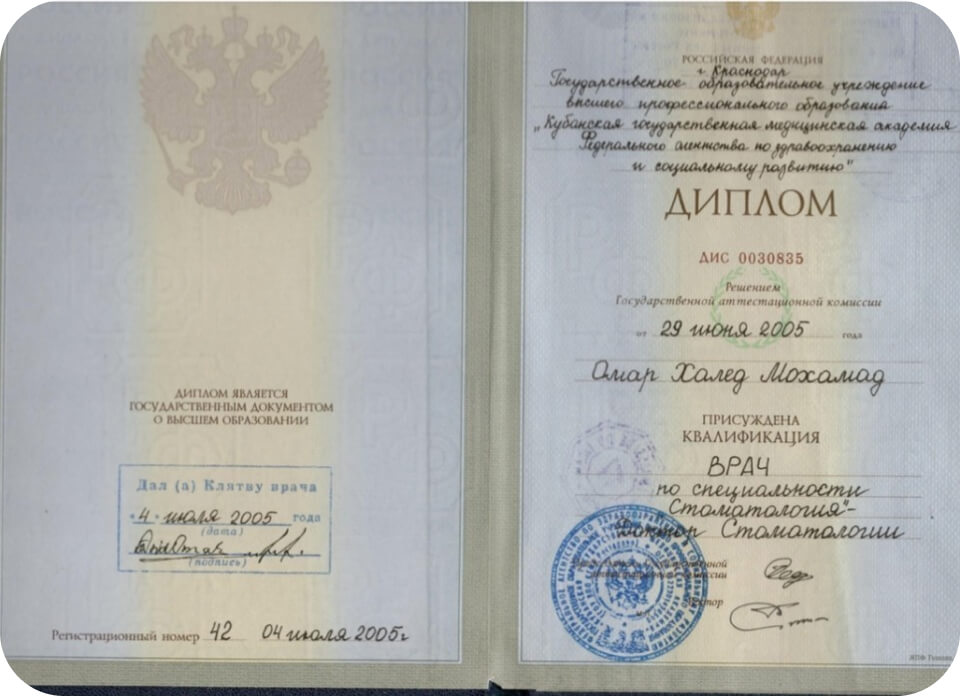 ДИПЛОМ ЯВЛЯЕТСЯ
ГОСУДАРСТВЕННЫМ ДОКУМЕНТОМ
О ВЫСШЕМ ОБРАЗОВАНИИ
Дал (а) Клятву врача
"4" июля 2005 года
(дата)
(подпись)
Регистрационный номер 42 04 июля 2005г
РОССИЙСКАЯ ФЕДЕРАЦИЯ
г. Краснодар
Государственное образовательное учреждение
высшего профессионального образования
„Кубанская государственная медицинская академия
Федерального агентства по здравоохранению
и социальному развитию"
ДИПЛОМ
ДИС 0030835
Решением
Государственной аттестационной комиссии
от 29 июня 2005 года
Омар Халед Мохамад
ПРИСУЖДЕНА
КВАЛИФИКАЦИЯ
ВРАЧ
по специальности
Стоматология"-
Доктор Стоматологии